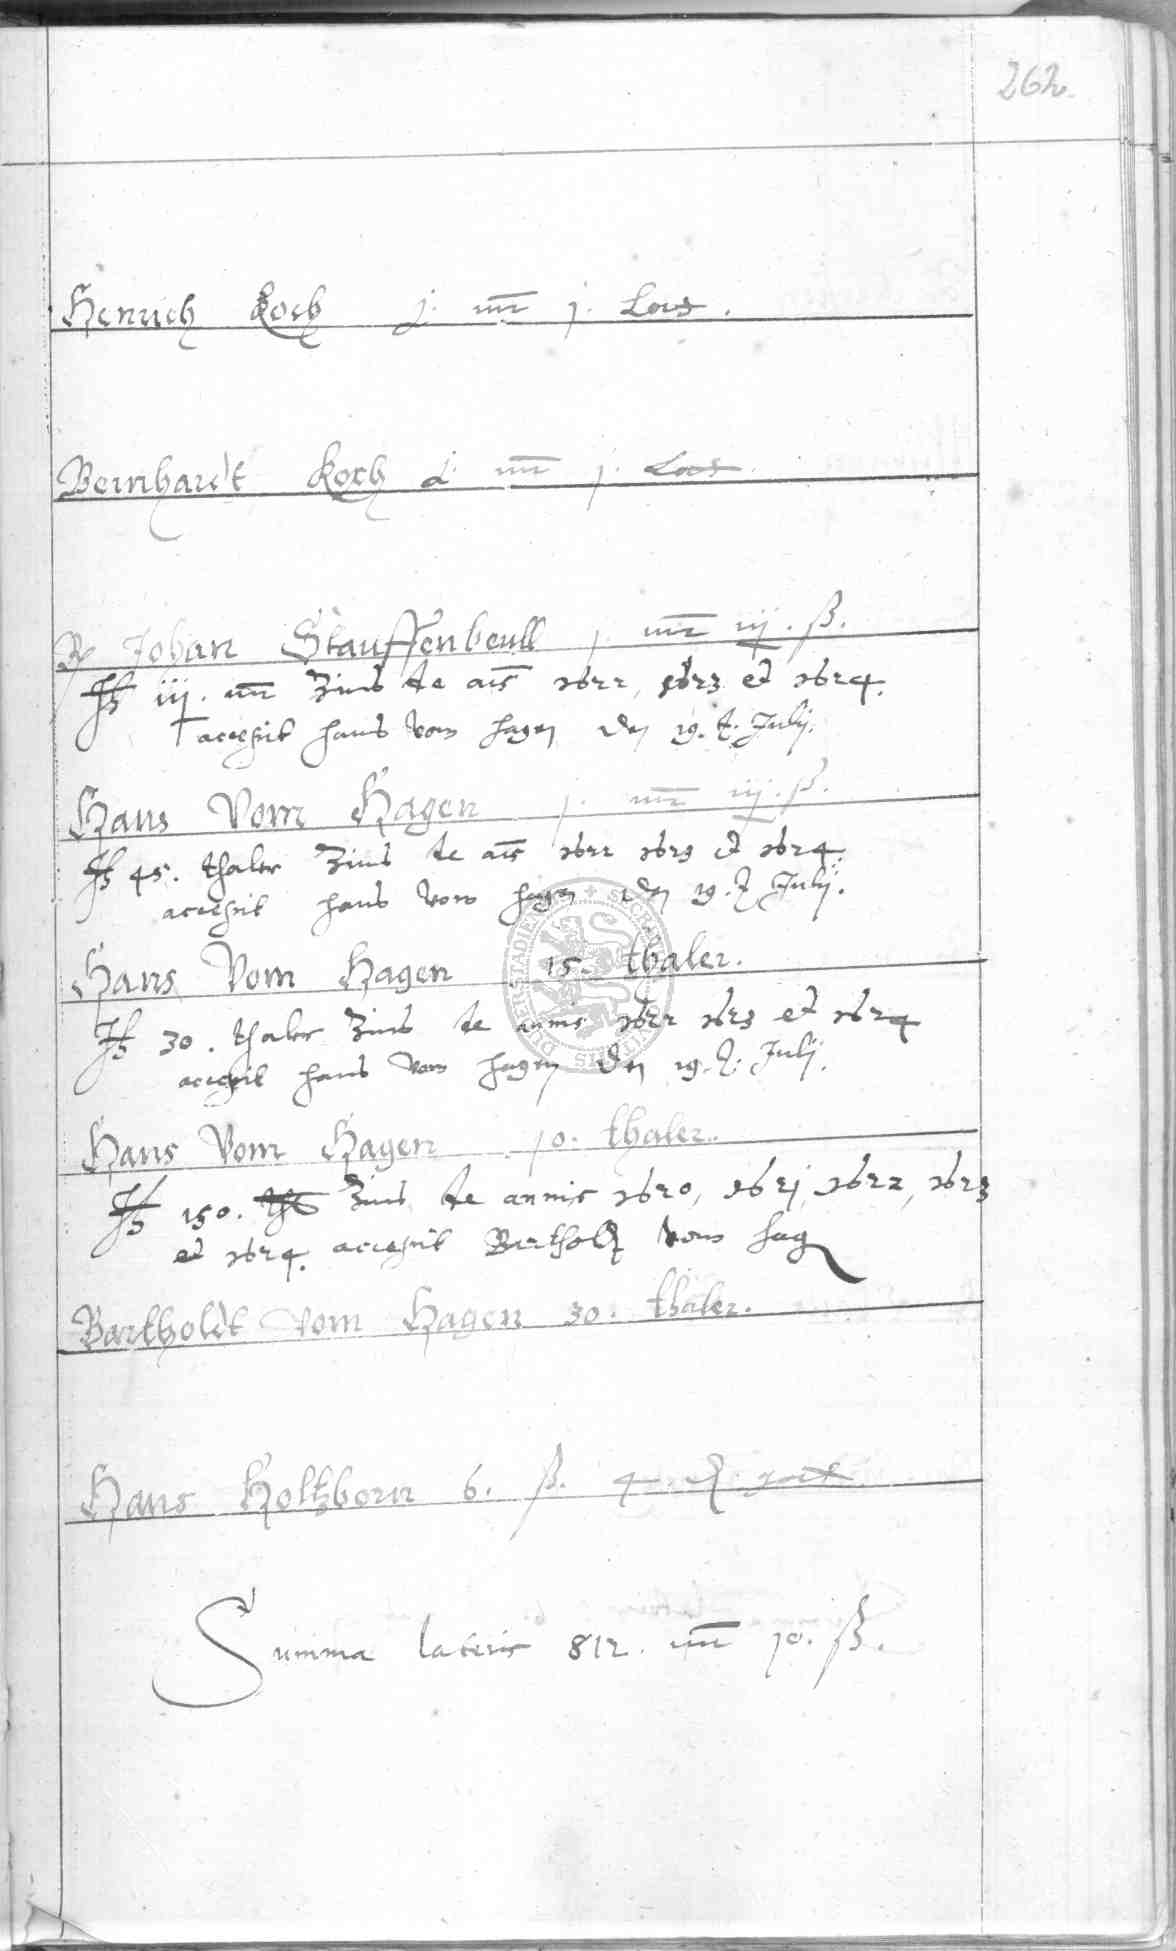 262.
Henrich Koch j. mr j. Lots.
Bernhardt Koch mr j. Lots.
Johan Stauffenbeull j. mr iij. ß.
iij. mr Zins de ais 1622, 1623 et 1624.
accepit Hans vom Hagen den 19. Julij.
Hans Vom Hagen j. mr iij. ß.
45. thaler Zins de ais 1622 1623 et 1624.
accepit Hans vom Hagen den 19. Julij.
Hans Vom Hagen 15. thaler.
30. thaler Zins de annis 1622 1623 et 1624
accepit Hans vom Hagen den 19. Julij.
Hans Vom Hagen 10. thaler.
150. Zins de annis 1620, 1621, 1622, 1623
et 1624. accepit Barthold vom Hag
Bartholdt Vom Hagen 30. thaler.
Hans Holtzborn 6. ß. 4
Summa lateris 812. mr 10. ß.